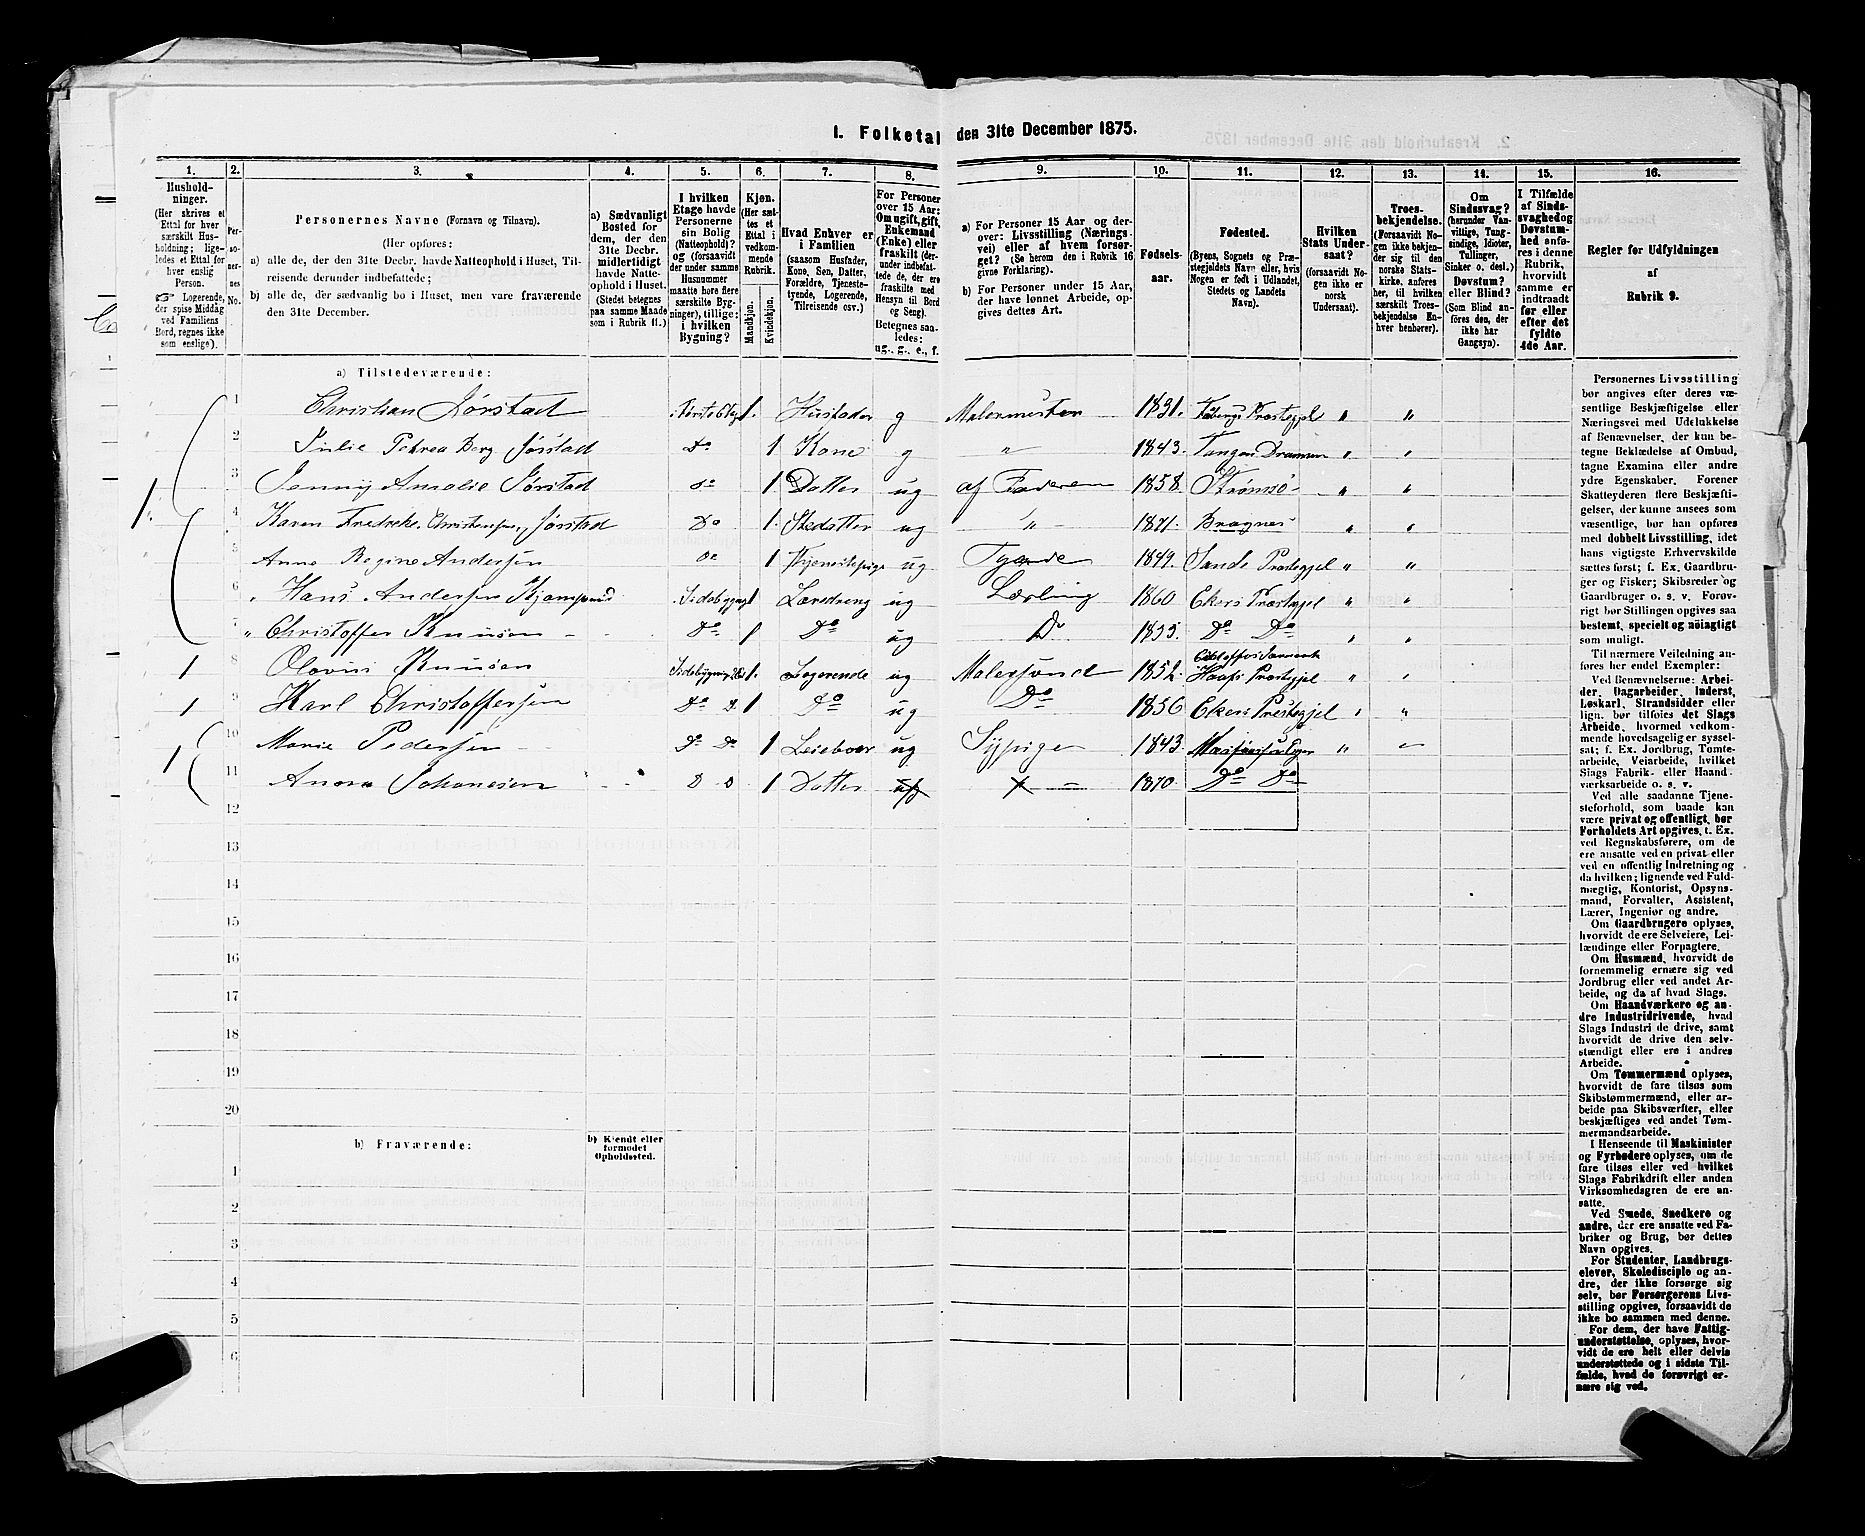 I. Folketal den 31te December 1875.
1. 2. 3. 4. 5. 6. 7. 8. 9. 10. 11. 12. 13. 14. 15. 16.
Husholdninger. (Her skrives et Ettal for hver særskilt Husholdning; ligeledes et Ettal for hver enslig Person. ☞ Logerende, der spise Middag ved Familiens Bord, regnes ikke som enslige).
Personernes No.
Personernes Navne (Fornavn og Tilnavn).
(Her opføres:
a) alle de, der den 31te Decbr. havde Natteophold i Huset, Tilreisende derunder indbefattede;
b) alle de, der sædvanlig bo i Huset, men vare fraværende den 31te December.
a) Sædvanligt Bosted for dem, der den 31te Decbr. midlertidigt havde Natteophold i Huset. (Stedet betegnes paa samme Maade som i Rubrik 11.)
I hvilken Etage havde Personerne sin Bolig (Natteophold)? og (forsaavidt der under samme Husnummer maatte høre flere særskilte Bygninger), tillige: i hvilken Bygning?
Kjøn. (Her sættes et Ettal i vedkommende Rubrik.
Mandkjøn. Kvindekjøn.
Hvad Enhver er i Familien (saasom Husfader, Kone, Søn, Datter, Forældre, Tjenestetyende, Logerende, Tilreisende osv.)
For Personer over 15 Aar: Om ugift, gift, Enkemand (Enke) eller fraskilt (derunder indbefattede de, der ere fraskilte med Hensyn til Bord og Seng). Betegnes saaledes: ug., g., e., f.
a) For Personer 15 Aar og derover: Livsstilling (Næringsvei) eller af hvem forsørget? (Se herom den i Rubrik 16 givne Forklaring).
b) For Personer under 15 Aar, der have lønnet Arbeide, opgives dettes Art.
Fødselsaar.
Fødested. (Byens, Sognets og Præstegjeldets Navn eller, hvis Nogen er født i Udlandet, Stedets og Landets Navn).
Hvilken Stats Undersaat? (forsaavidt Nogen ikke er norsk Undersaat).
Troesbekjendelse. (Forsaavidt Nogen ikke bekjender sig til den norske Statskirke, anføres her, til hvilken særskilt Troesbekjendelse Enhver henhører).
Om Sindssvag? (herunder Vanvittige, Tungsindige, Idioter, Tullinger, Sinker o. desl.) Døvstum? eller Blind? (Som Blind anføres den, der ikke har Gangsyn).
I Tilfælde af Sindssvaghed og Døvstumhed anføres i denne Rubrik, hvorvidt samme er indtraadt før eller efter det fyldte 4de Aar.
Regler for Udfyldningen af Rubrik 9.
a) Tilstedeværende:
1 Christian Jørstad 1. Husfader g Malermester 1831. Præstegjel " "
2 Julie Petrea Berg Jørstad Do 1 Kone g " 1843. Tangen Drammen " "
3 Jenny Amalie Jørstad do 1 Datter ug af Faderen 1858. Strømsø " "
4 Karen Fredrike Christensen Jørstad Do 1. Stedatter ug " 1871. Bragnes " "
5 Anne Regine Andersen do 1 Thjenestepige ug Tyende 1849. Sande Præstegjel " "
6 Hans Andersen 1 Læredreng ug Lærling 1860 Ekers Præstegjel " "
7 " Christoffer Knusen Do 1 Do ug Do 1855. Do Do " "
1 8 Olavus Knusen 1. Logerende ug Malersvend 1852. Præstegjel " "
1 9 Karl Christoffersen Do D. 1 Do ug Do 1856 Ekers Prestegjel " "
1 10 Marie Pedersen Do Do 1 Leieboer ug Sypige 1843. " "
11 Anna Johanesen D D 1 Datter 1870 Do Do
12
13
14
15
16
17
18
19
20
b) Fraværende:
b) Kjendt eller formodet Opholdssted.
1
2
3
4
5
6
Personernes Livsstilling
bør angives efter deres væ-
sentlige Beskjæftigelse eller
Næringsvei med Udelukkelse
af Benævnelser, der kun be-
tegne Beklædelse af Ombud,
tagne Examina eller andre
ydre Egenskaber. Forener
Skatteyderen flere Beskjæfti-
gelser, der kunne ansees som
væsentlige, bør han opføres
med dobbelt Livsstilling, idet
hans vigtigste Erhvervskilde
sættes først; f. Ex. Gaardbru-
ger og Fisker; Skibsreder og
Gaardbruger o. s. v. Forøv-
rigt bør Stillingen opgives saa
bestemt, specielt og nöiagtigt
som muligt.
Til nærmere Veiledning an-
føres her endel Exempler:
Ved Benævnelserne: Arbei-
der, Dagarbeider, Inderst,
Løskarl, Strandsidder eller
lign. bør tilføies det Slags
Arbeide, hvormed vedkom-
mende hovedsagelig er syssel-
sat; f. Ex. Jordbrug, Tomte-
arbeide, Veiarbeide, hvilket
Slags Fabrik- eller Haand-
værksarbeide o. s. v.
Ved alle saadanne Tjene-
steforhold, som baade kan
være privat og offentligt, bør
Forholdets Art opgives, t. Ex.
ved Regnskabsførere, om de
ere ansatte ved en privat eller
ved en offentlig Indretning og
da hvilken; lignende ved Fuld-
mægtig, Kontorist, Opsyns-
mand, Forvalter, Assistent,
Lærer, Ingeniør og andre.
Om Gaardbrugere oplyses,
hvorvidt de ere Selveiere, Lei-
lændinge eller Forpagtere.
Om Husmænd, hvorvidt de
fornemmelig ernære sig ved
Jordbrug eller ved andet Ar-
beide, og da af hvad Slags.
Om Haandværkere og an-
dre Industridrivende, hvad
Slags Industri de drive, samt
hvorvidt de drive den selv-
stændigt eller ere i andres
Arbeide.
Om Tømmermænd oplyses,
hvorvidt de fare tilsøs som
Skibstømmermænd, eller ar-
beide paa Skibsværfter, eller
beskjæftiges ved andet Tøm-
mermandsarbeide.
I Henseende til Maskinister
og Fyrbødere oplyses, om de
fare tilsøs eller ved hvilket
Slags Fabrikdrift eller anden
Virksomhedsgren de ere an-
satte.
Ved Smede, Snedkere og
andre, der ere ansatte ved Fa-
briker og Brug, bør dettes
Navn opgives.
For Studenter, Landbrugs-
elever, Skoledisciple og an-
dre, der ikke forsørge sig
selv, bør Forsørgerens Livs-
stilling opgives, forsaavidt de
ikke bo sammen med denne.
For dem, der have Fattig-
understøttelse, oplyses, hvor-
vidt de ere helt eller delvis
understøttede og i sidste Til-
fælde, hvad de forøvrigt er-
nære sig ved.